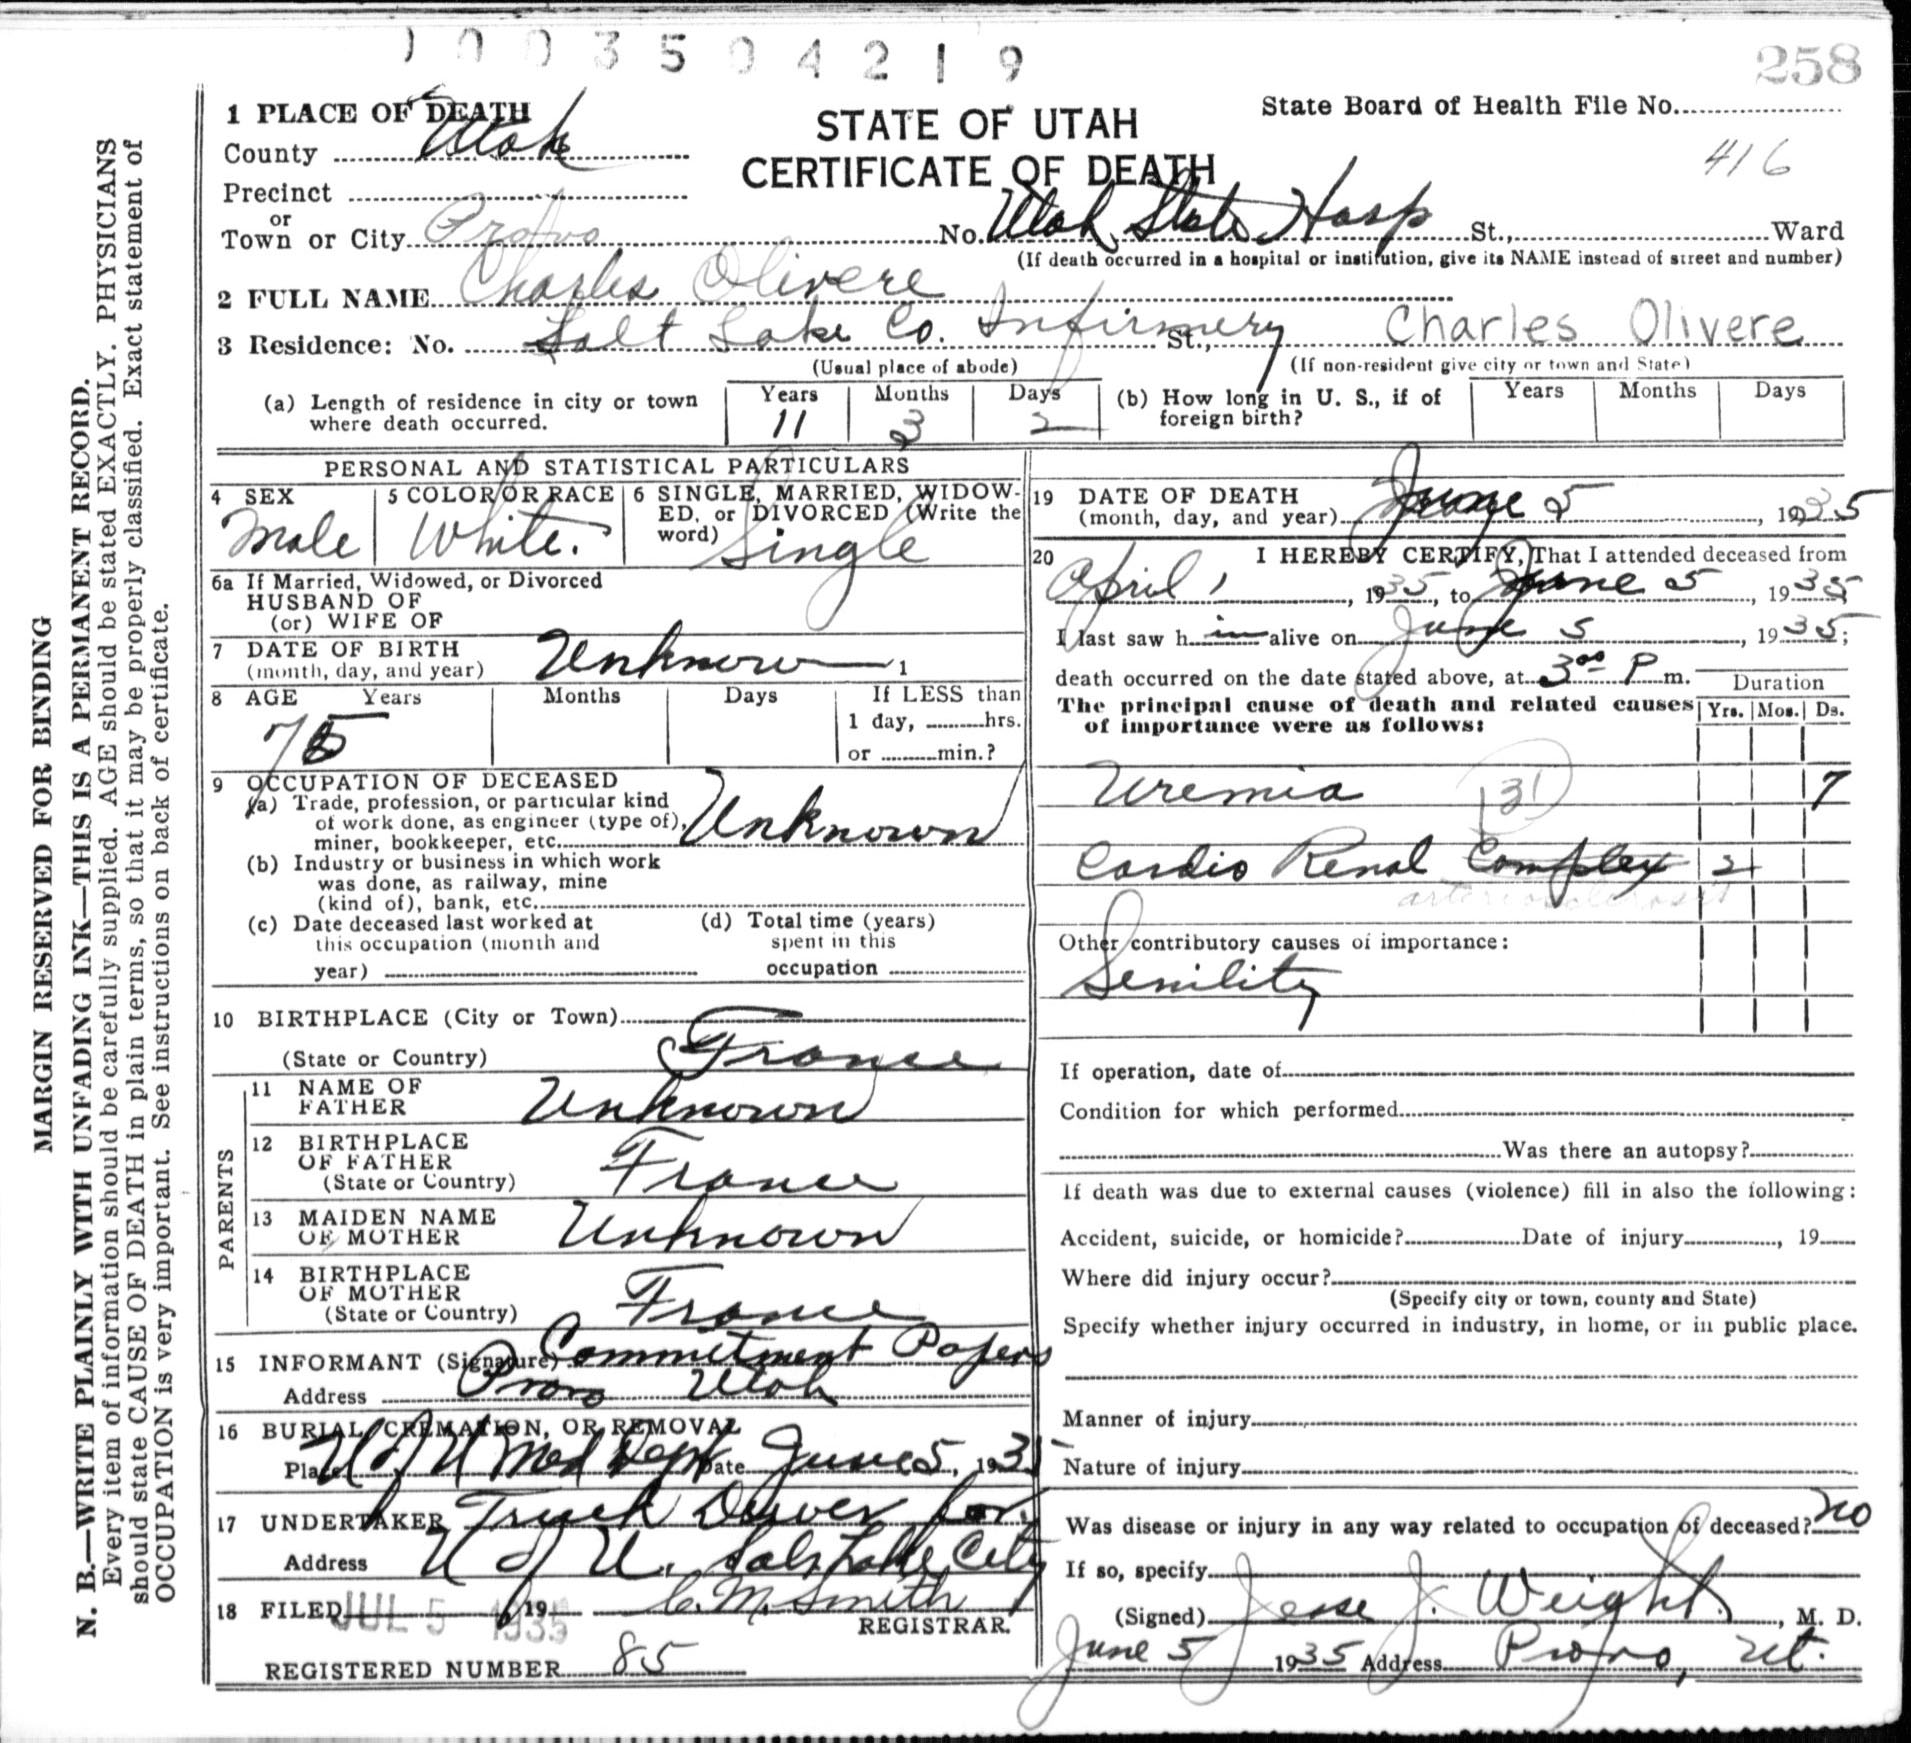 1 0 0 3 5 0 4 2 1 9
258
1 PLACE OF DEATH
STATE OF UTAH
CERTIFICATE OF DEATH
State Board of Health File No.
416
County Utah
Precinct
or
Town or City Provo No. Utah State Hosp St., Ward
(If death occurred in a hospital or institution, give its NAME instead of street and number)
2 FULL NAME Charles Olivere
3 Residence: No. Salt Lake Co. Infirmery St., Charles Olivere
(Usual place of abode) (If non-resident give city or town and State)
(a) Length of residence in city or town where death occurred. Years 11 Months 3 Days 2
(b) How long in U. S., if of foreign birth? Years Months Days
PERSONAL AND STATISTICAL PARTICULARS
4 SEX Male
5 COLOR OR RACE White.
6 SINGLE, MARRIED, WIDOW-
ED, or DIVORCED (Write the
word) Single
6a If Married, Widowed, or Divorced
HUSBAND OF
(or) WIFE OF
7 DATE OF BIRTH
(month, day, and year) Unknown 1
8 AGE Years Months Days If LESS than
1 day, hrs.
or min.?
75
9 OCCUPATION OF DECEASED
(a) Trade, profession, or particular kind
of work done, as engineer (type of),
miner, bookkeeper, etc. Unknown
(b) Industry or business in which work
was done, as railway, mine
(kind of), bank, etc.
(c) Date deceased last worked at
this occupation (month and
year)
(d) Total time (years)
spent in this
occupation
10 BIRTHPLACE (City or Town)
(State or Country) France
PARENTS
11 NAME OF
FATHER Unknown
12 BIRTHPLACE
OF FATHER
(State or Country) France
13 MAIDEN NAME
OF MOTHER Unknown
14 BIRTHPLACE
OF MOTHER
(State or Country) France
15 INFORMANT (Signature) Commitment Papers
Address Provo Utah
16 BURIAL, CREMATION, OR REMOVAL
Place U of U Med Dept Date June 5, 1935
17 UNDERTAKER Truck Driver for
Address U of U. Salt Lake City
18 FILED JUL 5 1935 19 C. M. Smith
REGISTRAR.
REGISTERED NUMBER 85
19 DATE OF DEATH
(month, day, and year) June 5, 1935
20 I HEREBY CERTIFY, That I attended deceased from
April 1, 1935, to June 5, 1935
I last saw h im alive on June 5, 1935;
death occurred on the date stated above, at 3 00 P m.
The principal cause of death and related causes
of importance were as follows:
Duration
Yrs. Mos. Ds.
Uremia 131 7
Cardio Renal Complex 2
arteriosclerosis
Other contributory causes of importance:
Senility
If operation, date of
Condition for which performed
Was there an autopsy?
If death was due to external causes (violence) fill in also the following:
Accident, suicide, or homicide? Date of injury, 19
Where did injury occur?
(Specify city or town, county and State)
Specify whether injury occurred in industry, in home, or in public place.
Manner of injury
Nature of injury
Was disease or injury in any way related to occupation of deceased? no
If so, specify
(Signed) Jesse J. Weight, M. D.
June 5 1935 Address Provo, Ut.
MARGIN RESERVED FOR BINDING
N. B.—WRITE PLAINLY WITH UNFADING INK—THIS IS A PERMANENT RECORD.
Every item of information should be carefully supplied. AGE should be stated EXACTLY. PHYSICIANS
should state CAUSE OF DEATH in plain terms, so that it may be properly classified. Exact statement of
OCCUPATION is very important. See instructions on back of certificate.